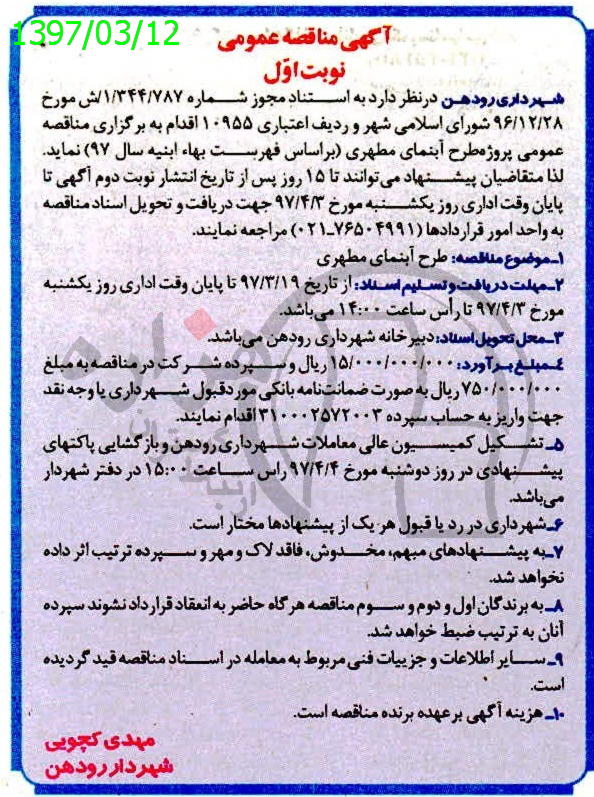 1397/03/12
آگهی مناقصه عمومی
نوبت اوّل
شهرداری رودهن درنظر دارد به استناد مجوز شماره ۱/۳۴۴/۷۸۷/ش مورخ
۹۶/۱۲/۲۸ شورای اسلامی شهر و ردیف اعتباری ۱۰۹۵۵ اقدام به برگزاری مناقصه
عمومی پروژه‌طرح آبنمای مطهری (براساس فهرست بهاء ابنیه سال ۹۷) نماید.
لذا متقاضیان پیشنهاد می‌توانند تا ۱۵ روز پس از تاریخ انتشار نوبت دوم آگهی تا
پایان وقت اداری روز یکشنبه مورخ ۹۷/۴/۳ جهت دریافت و تحویل اسناد مناقصه
به واحد امور قراردادها (۷۶۵۰۴۹۹۱-۰۲۱) مراجعه نمایند.
۱ـ موضوع مناقصه: طرح آبنمای مطهری
۲ـ مهلت دریافت و تسلیم اسناد: از تاریخ ۹۷/۳/۱۹ تا پایان وقت اداری روز یکشنبه
مورخ ۹۷/۴/۳ تا رأس ساعت ۱۴:۰۰ می‌باشد.
۳ـ محل تحویل اسناد: دبیرخانه شهرداری رودهن می‌باشد.
٤ـ مبلغ برآورد: ۱۵/۰۰۰/۰۰۰/۰۰۰ ریال و سپرده شرکت در مناقصه به مبلغ
۷۵۰/۰۰۰/۰۰۰ ریال به صورت ضمانت‌نامه بانکی موردقبول شهرداری یا وجه نقد
جهت واریز به حساب سپرده ۳۱۰۰۰۲۵۷۲۰۰۳ اقدام نمایند.
۵ـ تشکیل کمیسیون عالی معاملات شهرداری رودهن و بازگشایی پاکتهای
پیشنهادی در روز دوشنبه مورخ ۹۷/۴/۴ راس ساعت ۱۵:۰۰ در دفتر شهردار
می‌باشد.
۶ـ شهرداری در رد یا قبول هر یک از پیشنهادها مختار است.
۷ـ به پیشنهادهای مبهم، مخدوش، فاقد لاک و مهر و سپرده ترتیب اثر داده
نخواهد شد.
۸ـ به برندگان اول و دوم و سوم مناقصه هرگاه حاضر به انعقاد قرارداد نشوند سپرده
آنان به ترتیب ضبط خواهد شد.
۹ـ سایر اطلاعات و جزییات فنی مربوط به معامله در اسناد مناقصه قید گردیده
است.
۱۰ـ هزینه آگهی برعهده برنده مناقصه است.
مهدی کچویی
شهردار رودهن